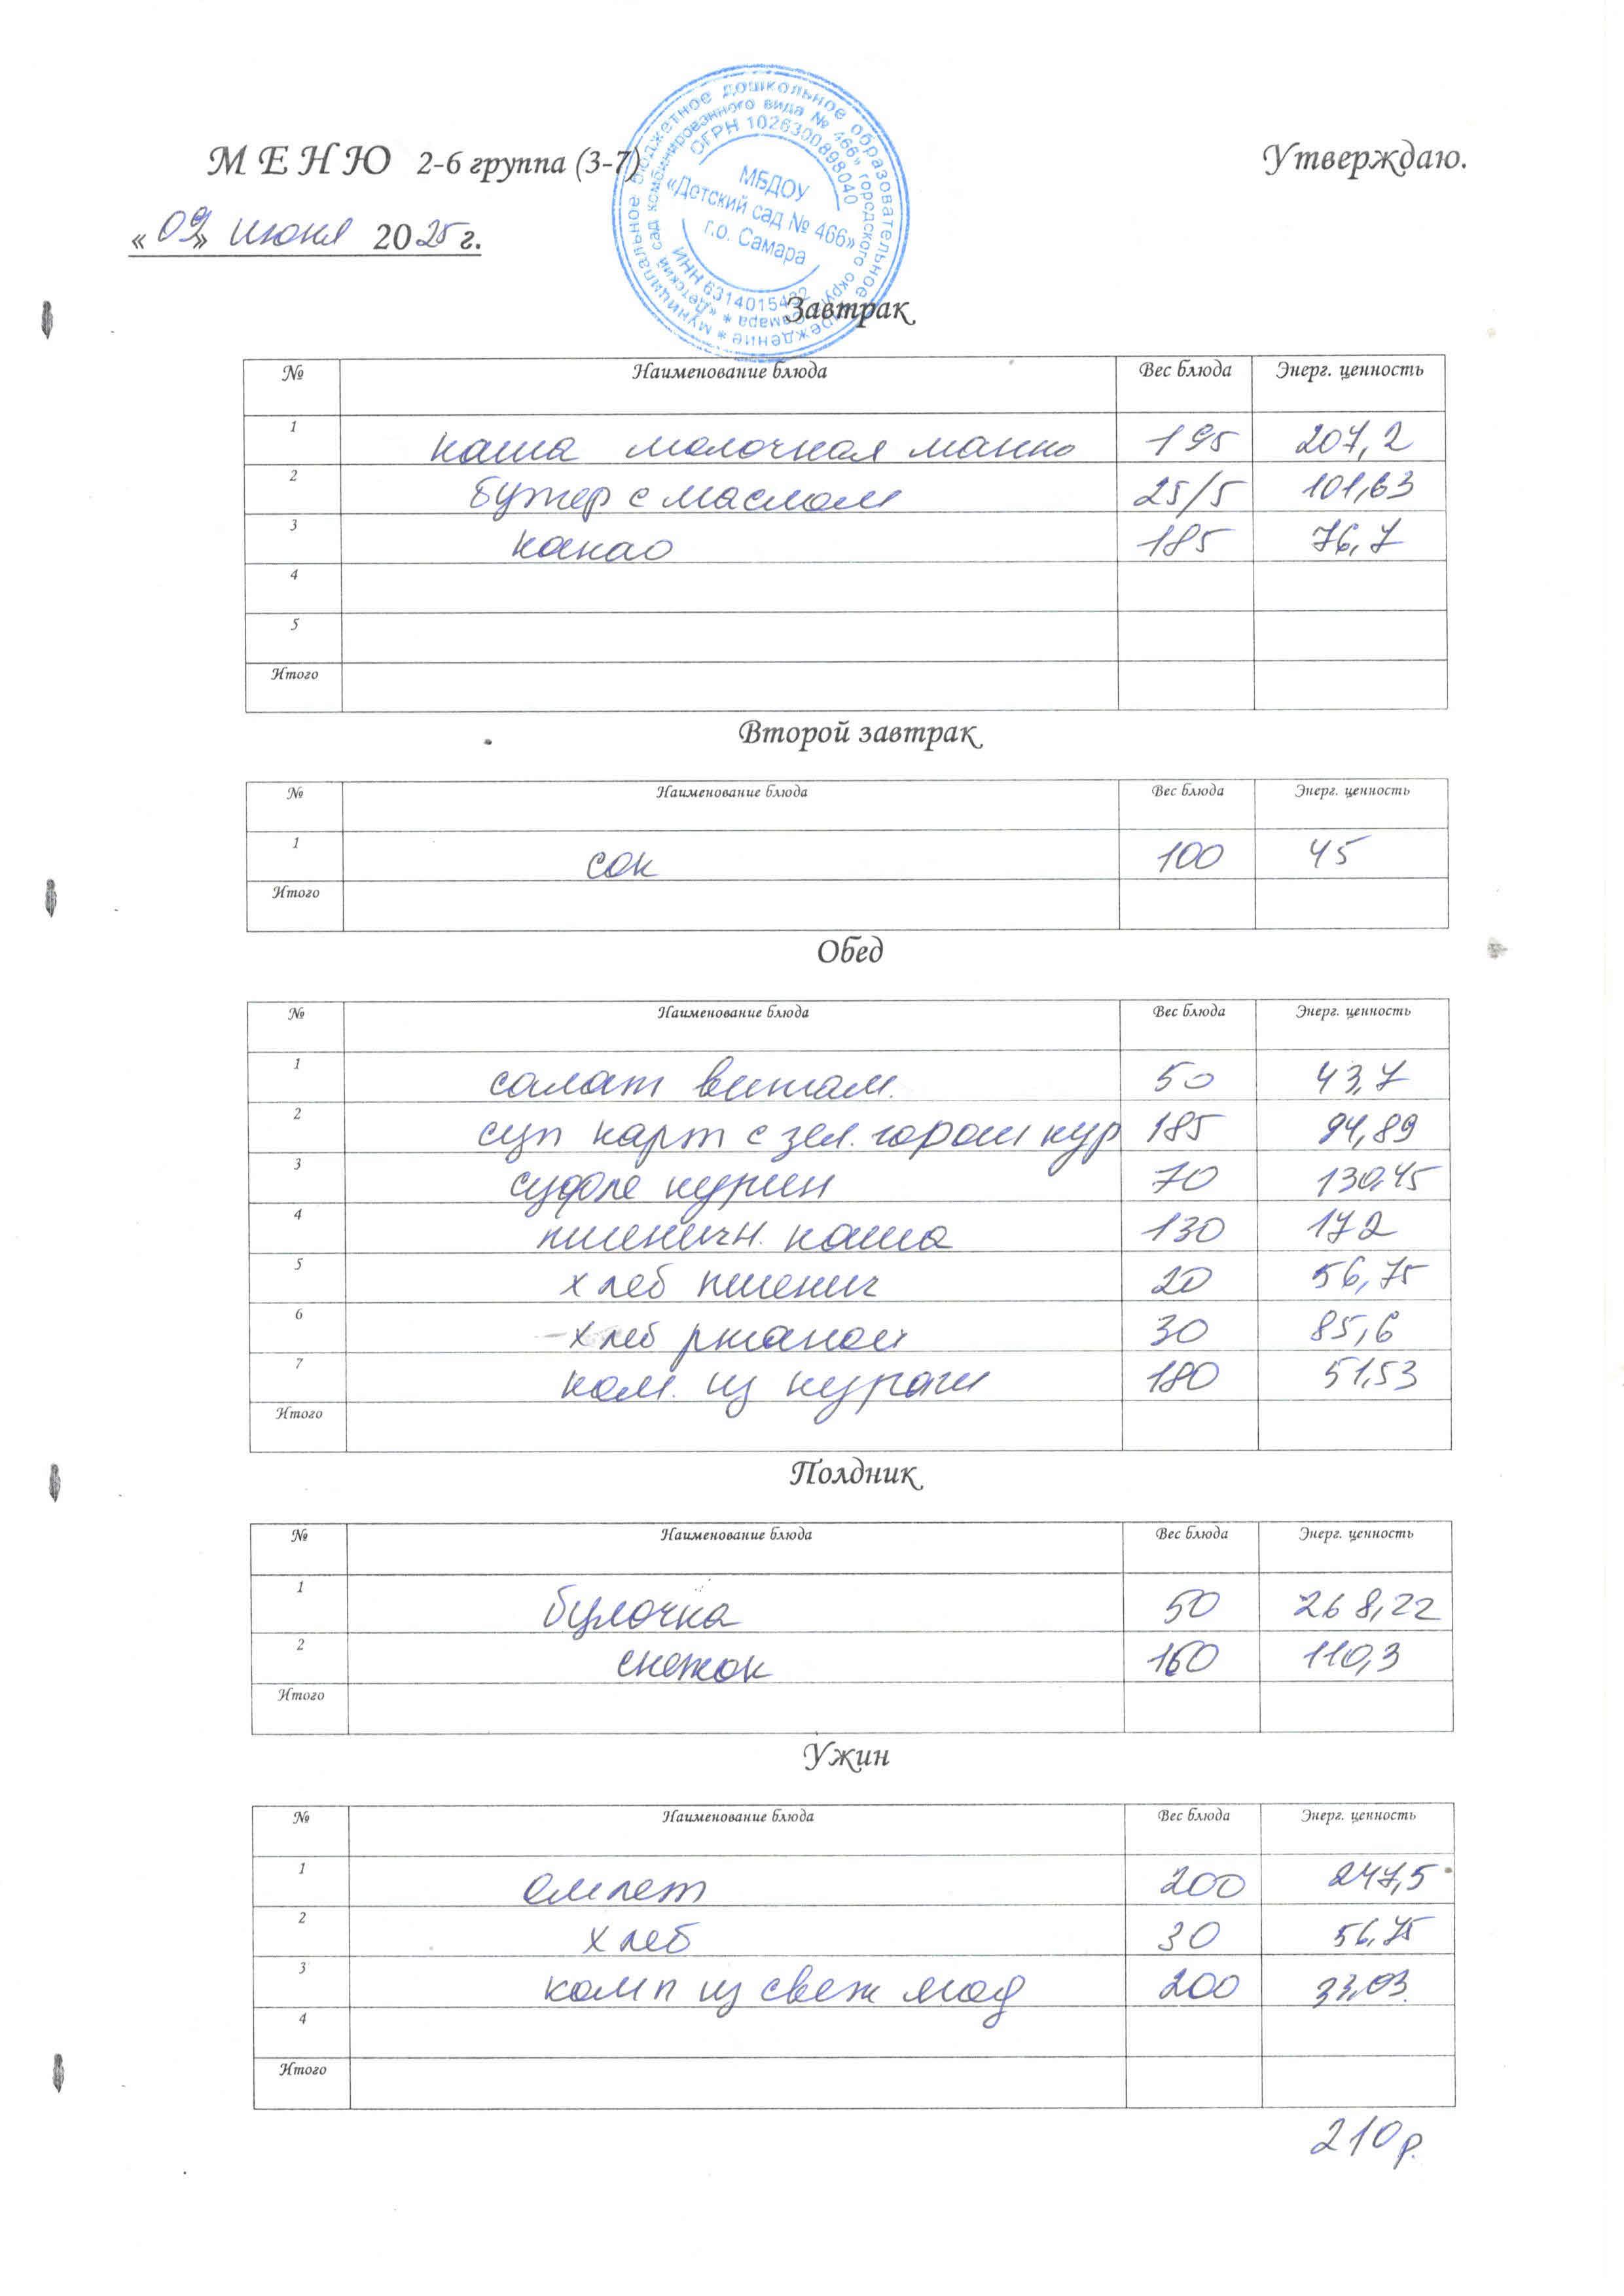 М Е Н Ю 2-6 группа (3-7)
Утверждаю.
«09» июня 2025 г.
муниципальное бюджетное дошкольное образовательное учреждение
«Детский сад комбинированного вида № 466» городского округа Самара
ОГРН 1026300898040
МБДОУ
«Детский сад № 466»
г.о. Самара
ИНН 6314015432
Завтрак
№ Наименование блюда Вес блюда Энерг. ценность
1 каша молочная манно 195 207,2
2 бутер с маслом 25/5 101,63
3 какао 185 76,7
4
5
Итого
Второй завтрак
№ Наименование блюда Вес блюда Энерг. ценность
1 сок 100 45
Итого
Обед
№ Наименование блюда Вес блюда Энерг. ценность
1 салат витам. 50 43,7
2 суп карт с зел. горош кур 185 94,89
3 суфле курин 70 130,45
4 пшеничн. каша 130 172
5 хлеб пшенич 20 56,75
6 хлеб ржаной 30 85,6
7 ком. из кураги 180 51,53
Итого
Полдник
№ Наименование блюда Вес блюда Энерг. ценность
1 булочка 50 268,22
2 снежок 160 110,3
Итого
Ужин
№ Наименование блюда Вес блюда Энерг. ценность
1 омлет 200 247,5
2 хлеб 30 56,75
3 комп из свеж яюд 200 33,03
4
Итого
210 р.